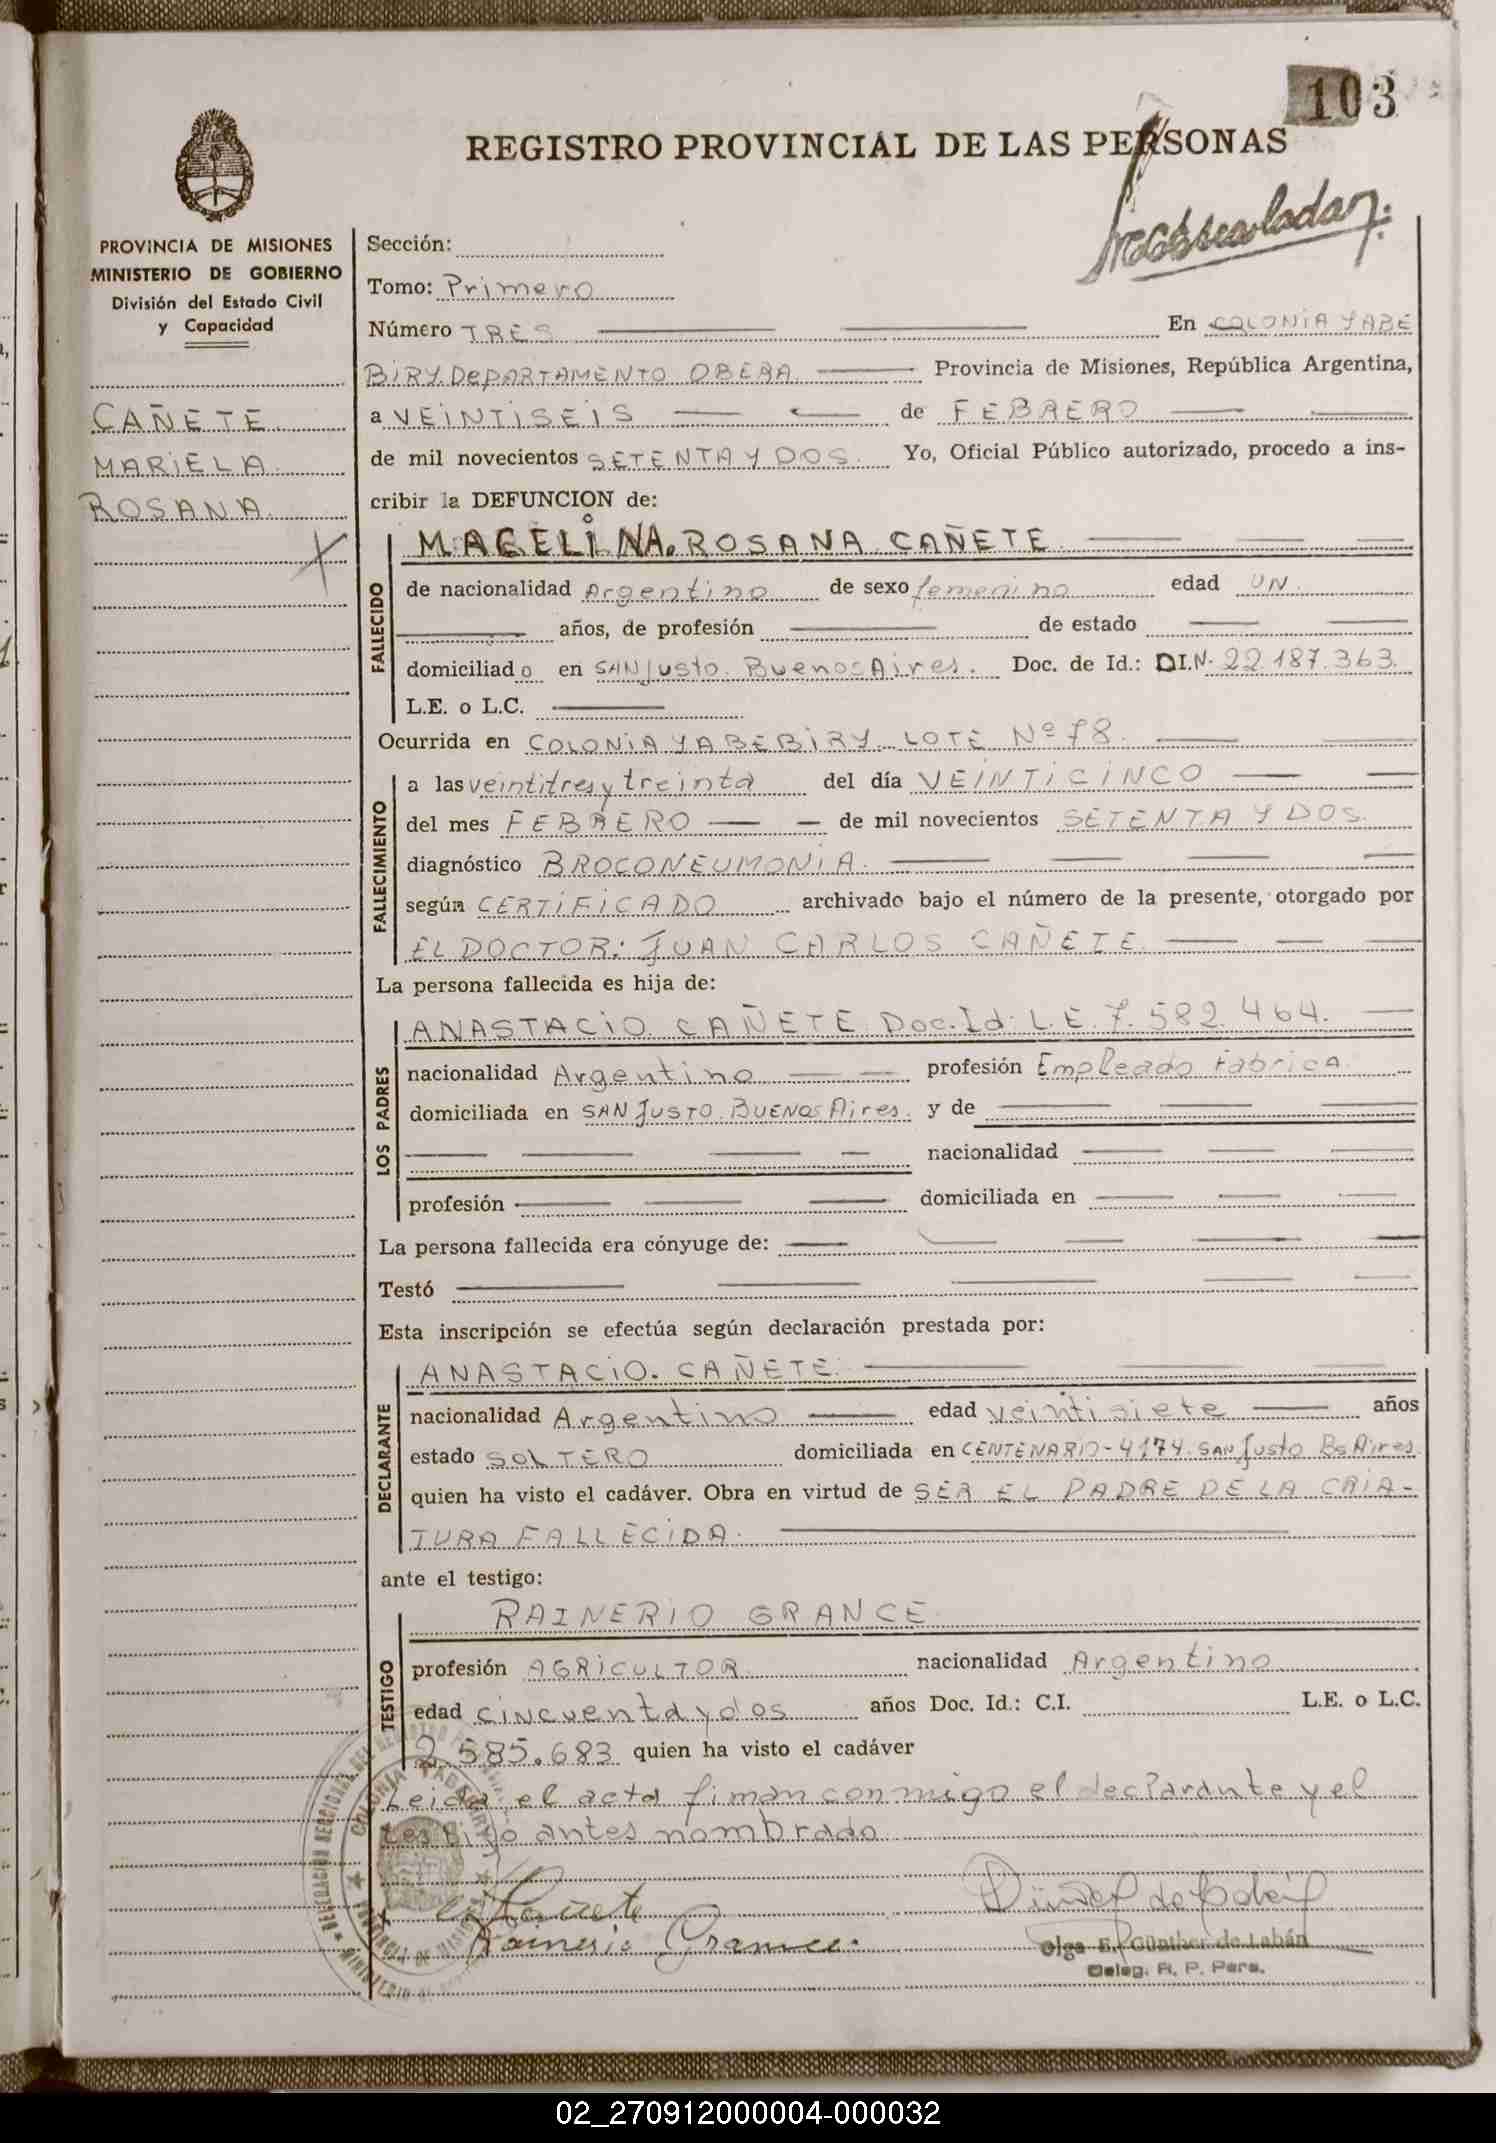 103
REGISTRO PROVINCIAL DE LAS PERSONAS
PROVINCIA DE MISIONES
MINISTERIO DE GOBIERNO
División del Estado Civil
y Capacidad
CAÑETE
MARIELA
ROSANA
Sección:
Tomo: Primero
Número TRES En COLONIA YABE
BIRY DEPARTAMENTO OBERA Provincia de Misiones, República Argentina,
a VEINTISEIS de FEBRERO
de mil novecientos SETENTA Y DOS. Yo, Oficial Público autorizado, procedo a ins-
cribir la DEFUNCION de:
ROSANA CAÑETE
FALLECIDO
de nacionalidad Argentino de sexo femenino edad UN
años, de profesión de estado
domiciliado en SAN Justo. Buenos Aires. Doc. de Id.: D.I.N. 22.187.363.
L.E. o L.C.
Ocurrida en COLONIA YABEBIRY LOTE Nº 78.
FALLECIMIENTO
a las veintitres y treinta del día VEINTICINCO
del mes FEBRERO de mil novecientos SETENTA Y DOS.
diagnóstico BROCONEUMONIA.
según CERTIFICADO archivado bajo el número de la presente, otorgado por
EL DOCTOR: JUAN CARLOS CAÑETE
La persona fallecida es hija de:
LOS PADRES
ANASTACIO CAÑETE Doc. Id: L.E. 7.582.464.
nacionalidad Argentino profesión Empleado Fabrica
domiciliada en SAN JUSTO. BUENOS Aires. y de
nacionalidad
profesión domiciliada en
La persona fallecida era cónyuge de:
Testó
Esta inscripción se efectúa según declaración prestada por:
DECLARANTE
ANASTACIO. CAÑETE.
nacionalidad Argentino edad veintisiete años
estado SOLTERO domiciliada en CENTENARIO-4174. SAN Justo Bs Aires.
quien ha visto el cadáver. Obra en virtud de SER EL PADRE DE LA CRIA-
TURA FALLECIDA.
ante el testigo:
TESTIGO
RAINERIO GRANCE
profesión AGRICULTOR nacionalidad Argentino
edad cincuenta y dos años Doc. Id.: C.I. L.E. o L.C.
2.585.683 quien ha visto el cadáver
Leida el acta fiman conmigo el declarante y el
testigo antes nombrado
Cañete
Rainerio Grance.
Olga E. Günther de Labán
Deleg. R. P. Pers.
02_270912000004-000032